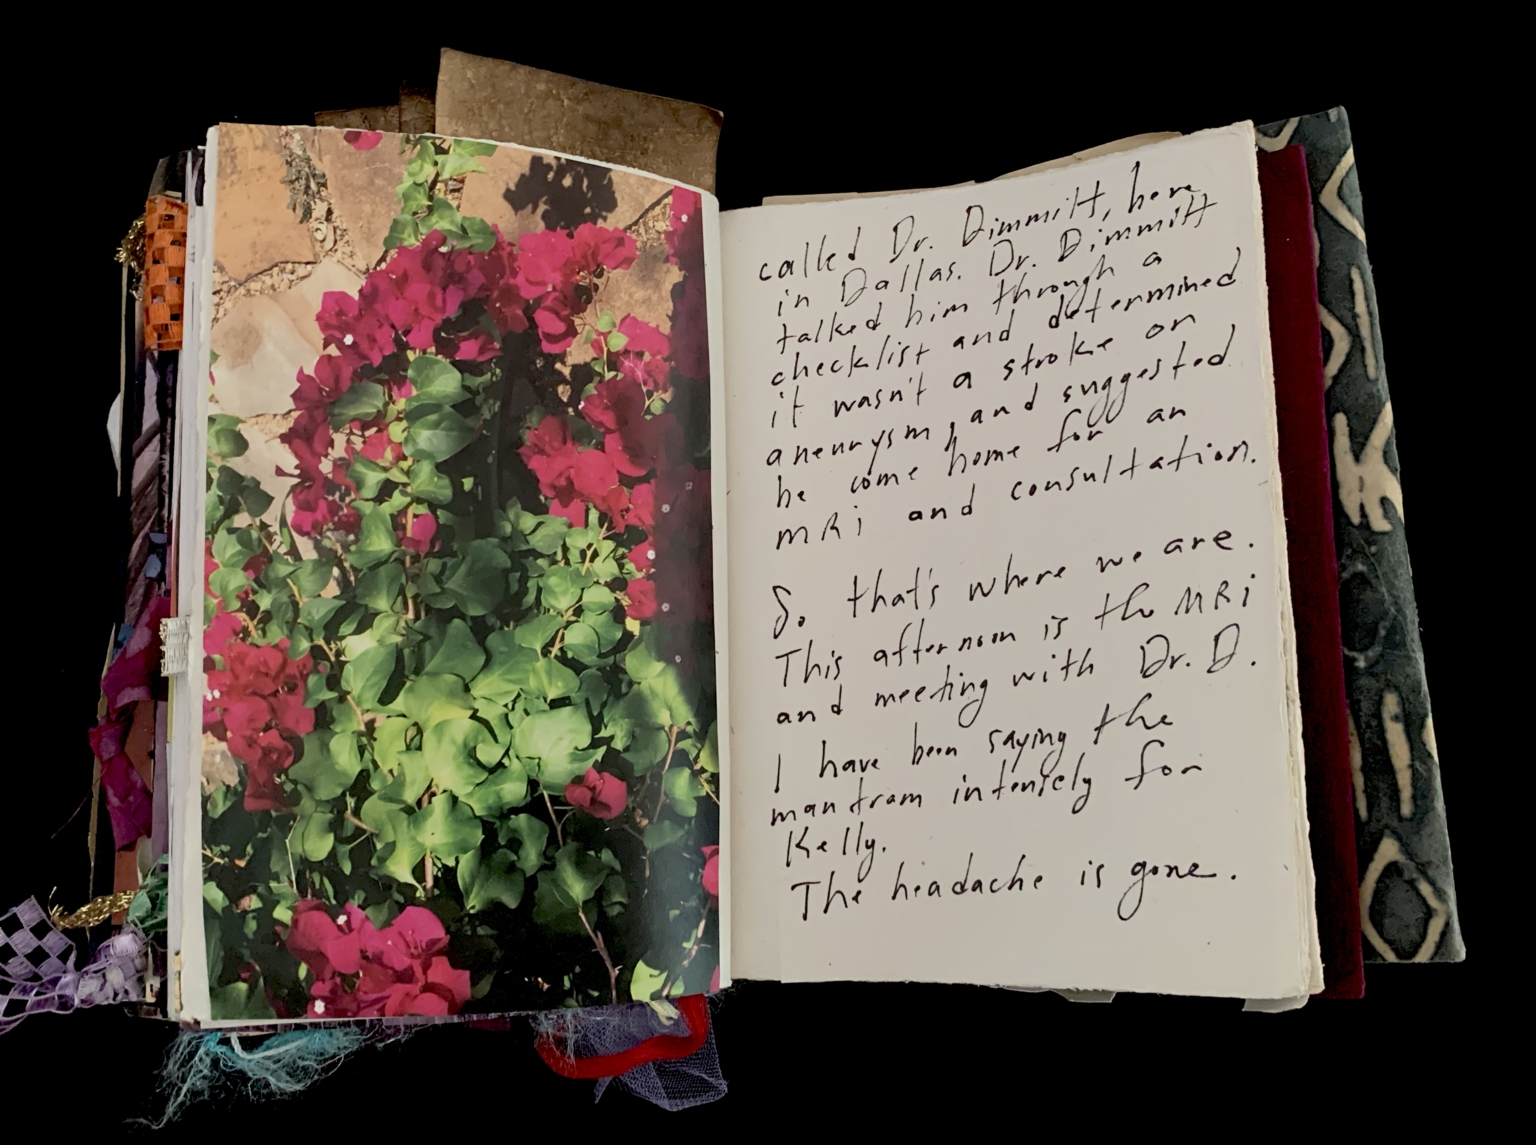 called Dr. Dimmitt, here
in Dallas. Dr. Dimmitt
talked him through a
checklist and determined
it wasn't a stroke or
aneurysm, and suggested
he come home for an
MRi and consultation.
So that's where we are.
This afternoon is the MRi
and meeting with Dr. D.
I have been saying the
mantram intensely for
Kelly.
The headache is gone.